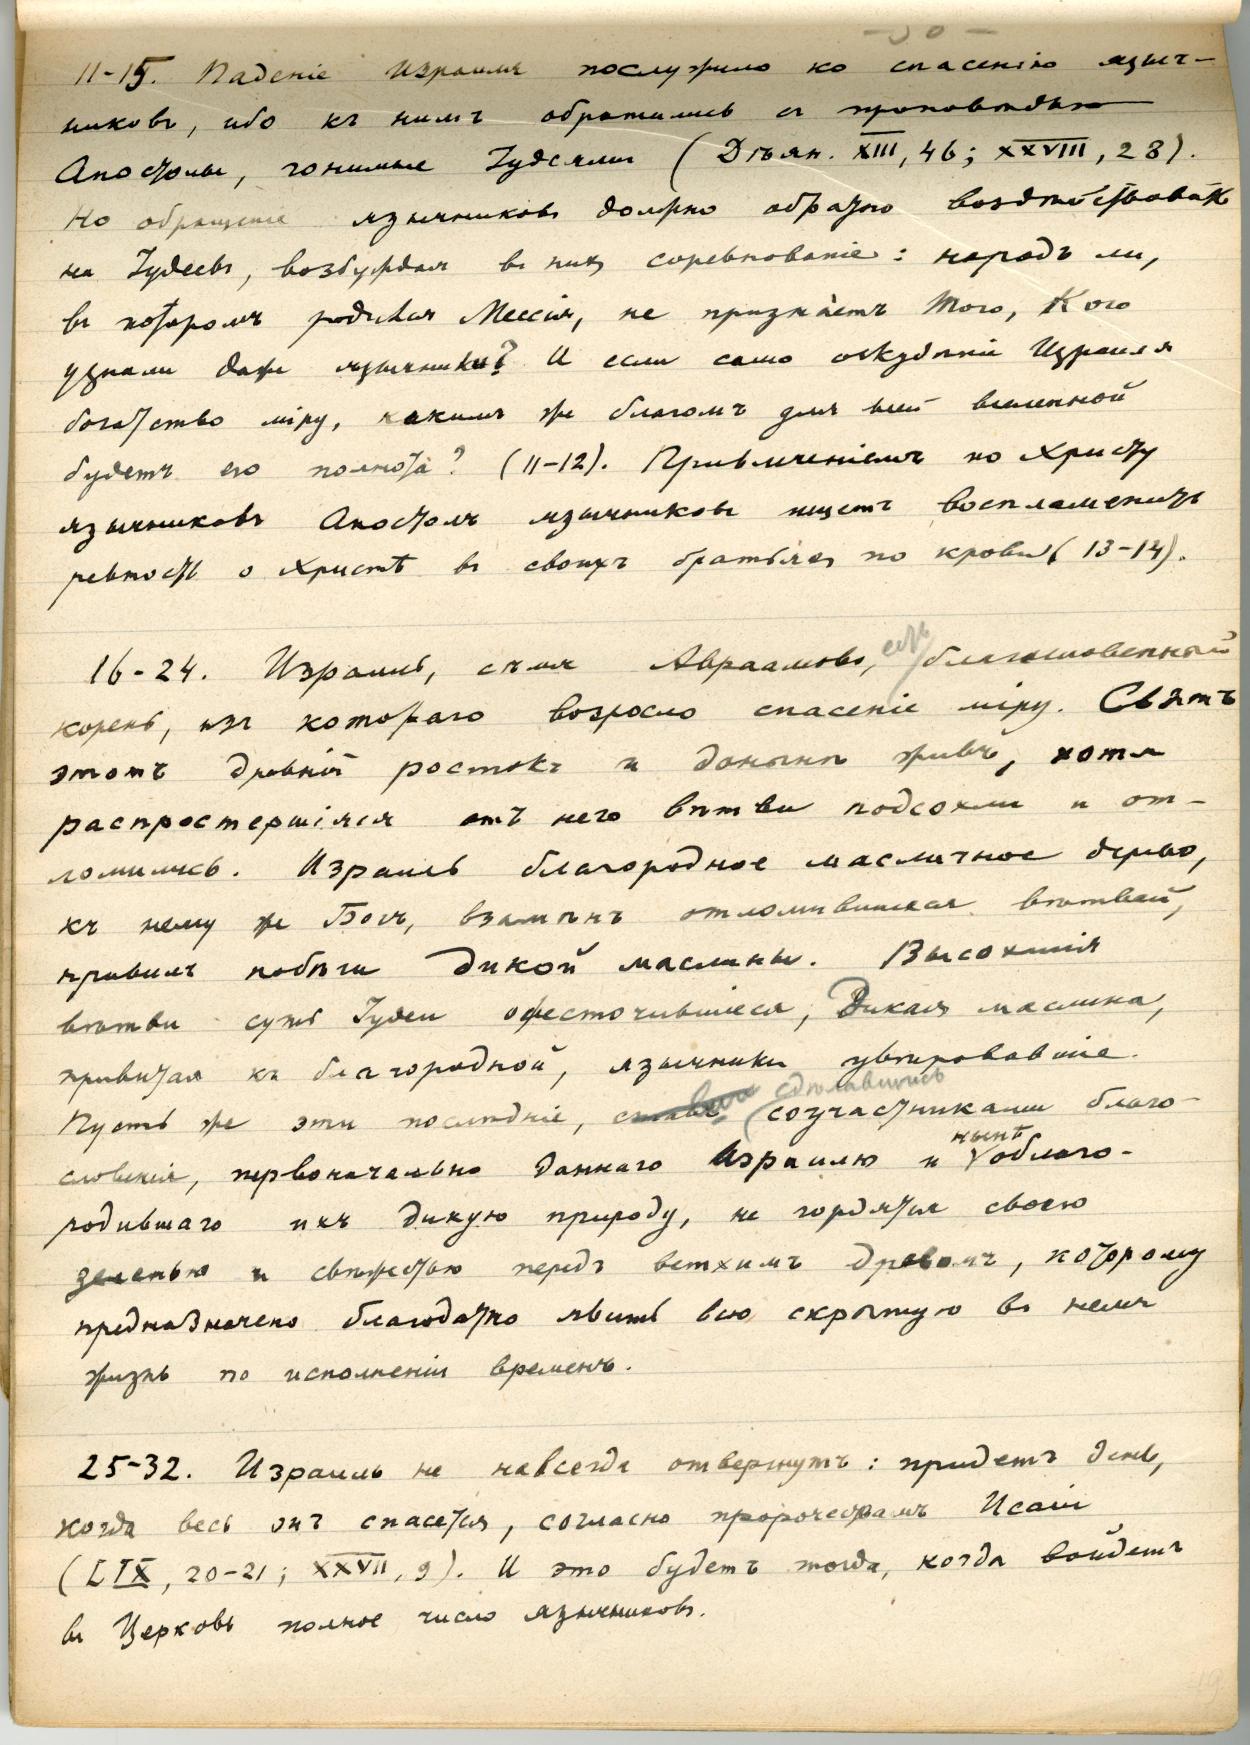 - 30 -
11-15. Паденіе Израиля послужило ко спасенію языч-
никовъ, ибо къ нимъ обратились съ проповѣдью
Апостолы, гонимые Іудеями (Дѣян. XIII, 46; XXVIII, 28).
Но обращеніе язычниковъ должно обратно воздѣйствовать
на Іудеевъ, возбуждая въ нихъ соревнованіе: народъ ли,
въ которомъ родился Мессія, не признаетъ Того, Кого
узнали даже язычники? И если само оскудѣніе Израиля
богатство міру, какимъ же благомъ для всей вселенной
будетъ его полнота? (11-12). Привлеченіемъ ко Христу
язычниковъ Апостолъ язычниковъ ищетъ воспламенить
ревность о Христѣ въ своихъ братьяхъ по крови (13-14).
16-24. Израиль, сѣмя Авраамово, есть благословенный
корень, изъ котораго возросло спасеніе міру. Святъ
этотъ древній ростокъ и донынѣ живъ, хотя
распростершіяся отъ него вѣтви подсохли и от-
ломились. Израиль благородное масличное дерево,
къ нему же Богъ, взамѣнъ отломившихся вѣтвей,
привилъ побѣги дикой маслины. Высохшія
вѣтви суть Іудеи ожесточившіеся, Дикая маслина,
привитая къ благородной, язычники увѣровавшіе.
Пусть же эти послѣдніе, сдѣлавшись соучастниками благо-
словенія, первоначально даннаго Израилю и нынѣ облаго-
родившаго ихъ дикую природу, не гордятся своею
зеленью и свѣжестью передъ ветхимъ древомъ, которому
предназначено благодатно явить всю скрытую въ немъ
жизнь по исполненіи временъ.
25-32. Израиль не навсегда отвергнутъ: придетъ день,
когда весь онъ спасется, согласно пророчествамъ Исаіи
(LIX, 20-21; XXVII, 9). И это будетъ тогда, когда войдетъ
въ Церковь полное число язычниковъ.